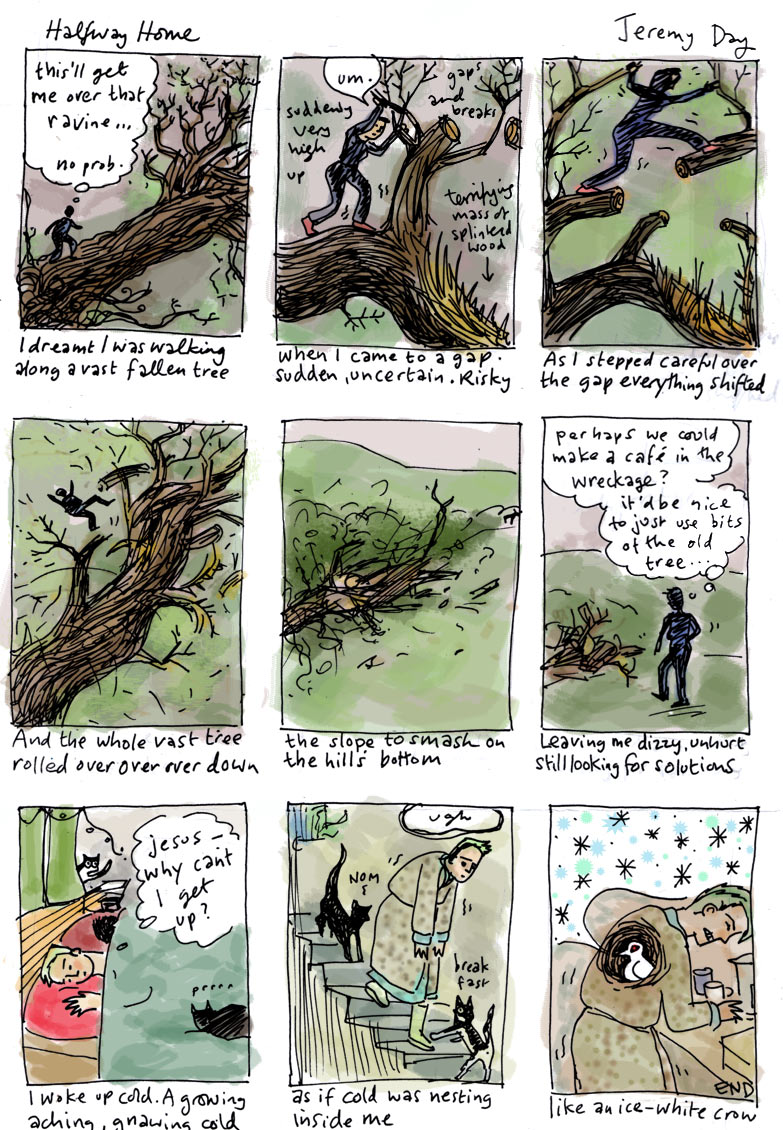 Halfway Home
Jeremy Day
this'll get
me over that
ravine...
no prob.
I dreamt I was walking
along a vast fallen tree
um.
suddenly
very
high
up
gaps
and
breaks
terrifying
mass of
splintered
wood
When I came to a gap.
sudden, uncertain. Risky
As I stepped careful over
the gap everything shifted
And the whole vast tree
rolled over over over down
the slope to smash on
the hill's bottom
perhaps we could
make a café in the
wreckage?
it'd be nice
to just use bits
of the old
tree...
Leaving me dizzy, unhurt
still looking for solutions
jesus –
why can't
I get
up?
prrrr
I woke up cold. A growing
aching, gnawing cold
ugh
NOM
break
fast
as if cold was nesting
inside me
END
like an ice-white crow